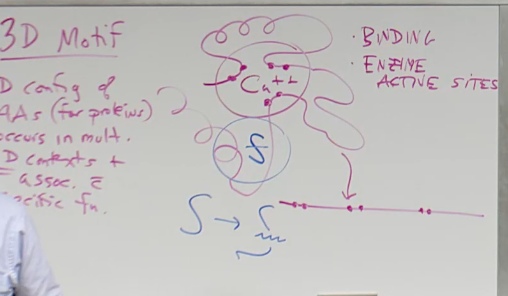 3D Motif
D config of
AAs (for proteins)
occurs in mult.
D contexts +
assoc. c̄
ecific fn.
Ca++
· BINDING
· ENZYME
ACTIVE SITES
f
S → S